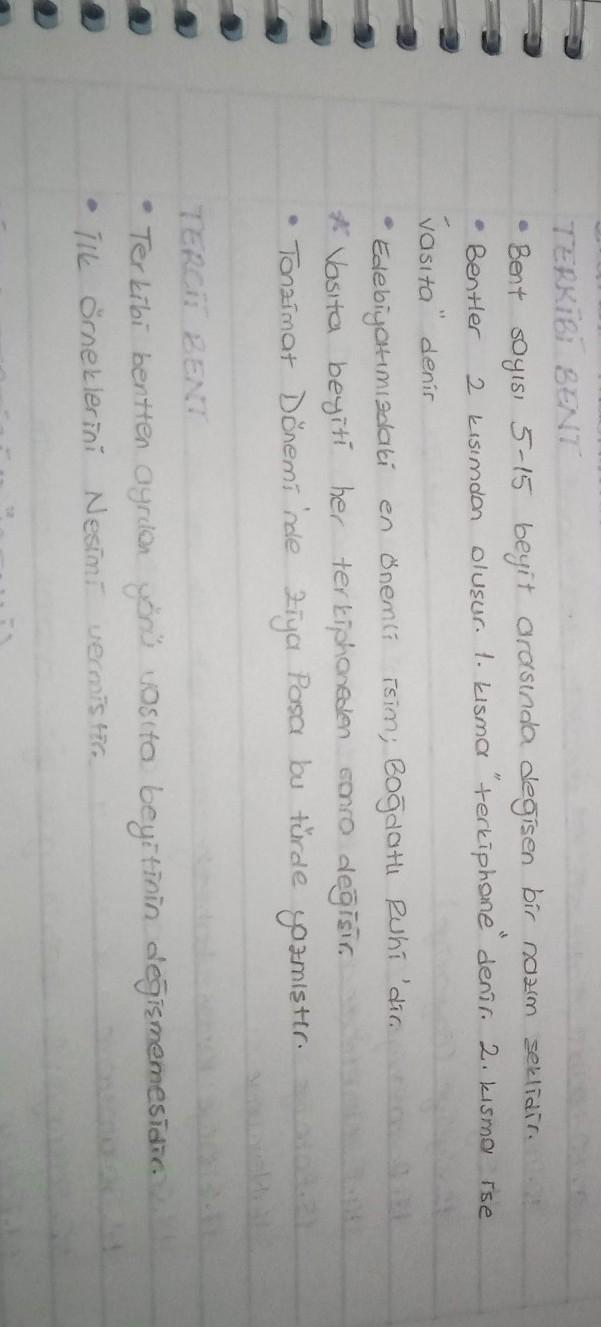 TERKİBİ BENT
• Bent sayısı 5-15 beyit arasında değişen bir nazım şeklidir.
• Bentler 2 kısımdan oluşur. 1. kısma "terkiphane" denir. 2. kısma ise
"vasıta" denir
• Edebiyatımızdaki en önemli isim; Bağdatlı Ruhi'dir.
* Vasıta beyiti her terkiphaneden sonra değişir.
• Tanzimat Dönemi'nde Ziya Paşa bu türde yazmıştır.
TERCİİ BENT
• Terkibi bentten ayrılan yönü vasıta beyitinin değişmemesidir.
• İlk örneklerini Nesimi vermiştir.